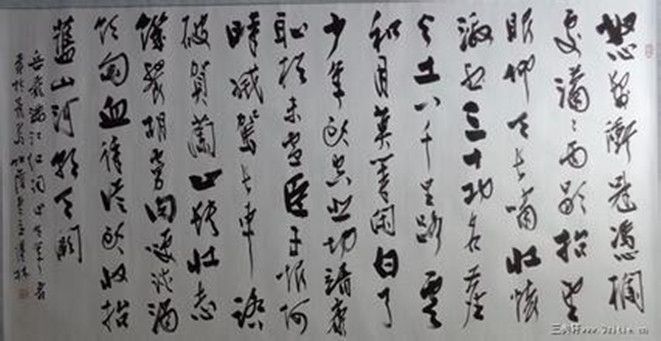 怒髮衝冠憑欄
處瀟瀟雨歇抬望
眼仰天長嘯壯懷
激烈三十功名塵
與土八千里路雲
和月莫等閒白了
少年頭空悲切靖康
恥猶未雪臣子恨何
時滅駕長車踏
破賀蘭山缺壯志
饑餐胡虜肉笑談渴
飲匈血待從頭收拾
舊山河朝天闕
岳飛滿江紅詞